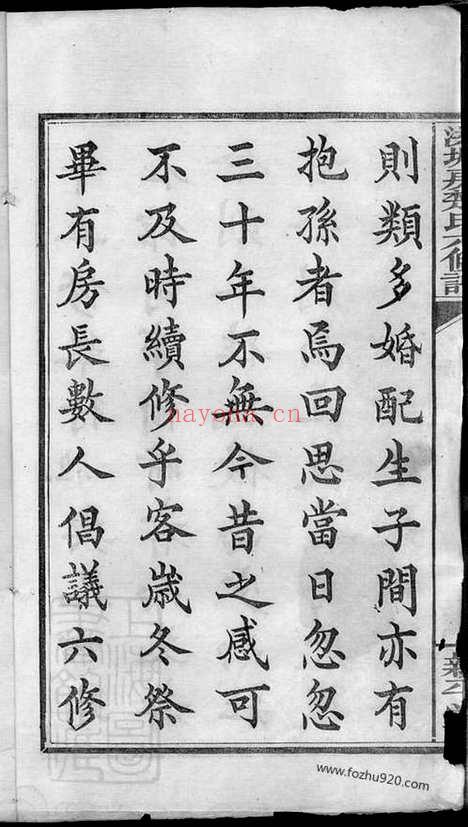 則類多婚配生子間亦有
抱孫者焉回思當日忽忽
三十年不無今昔之感可
不及時續修乎客歲冬祭
畢有房長數人倡議六修
haysha.cn
www.fozhu920.com